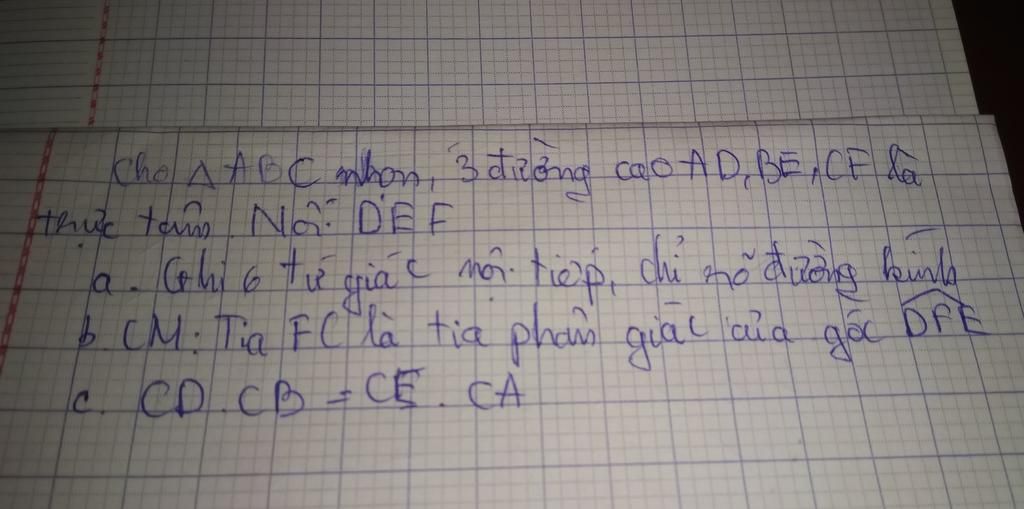 Cho △ABC nhọn, 3 đường cao AD, BE, CF là
trực tâm. Nối DEF
a. Ghi 6 tứ giác nội tiếp, chỉ rõ đường kính
b. CM: Tia FC là tia phân giác của góc DFE
c. CD. CB = CE. CA